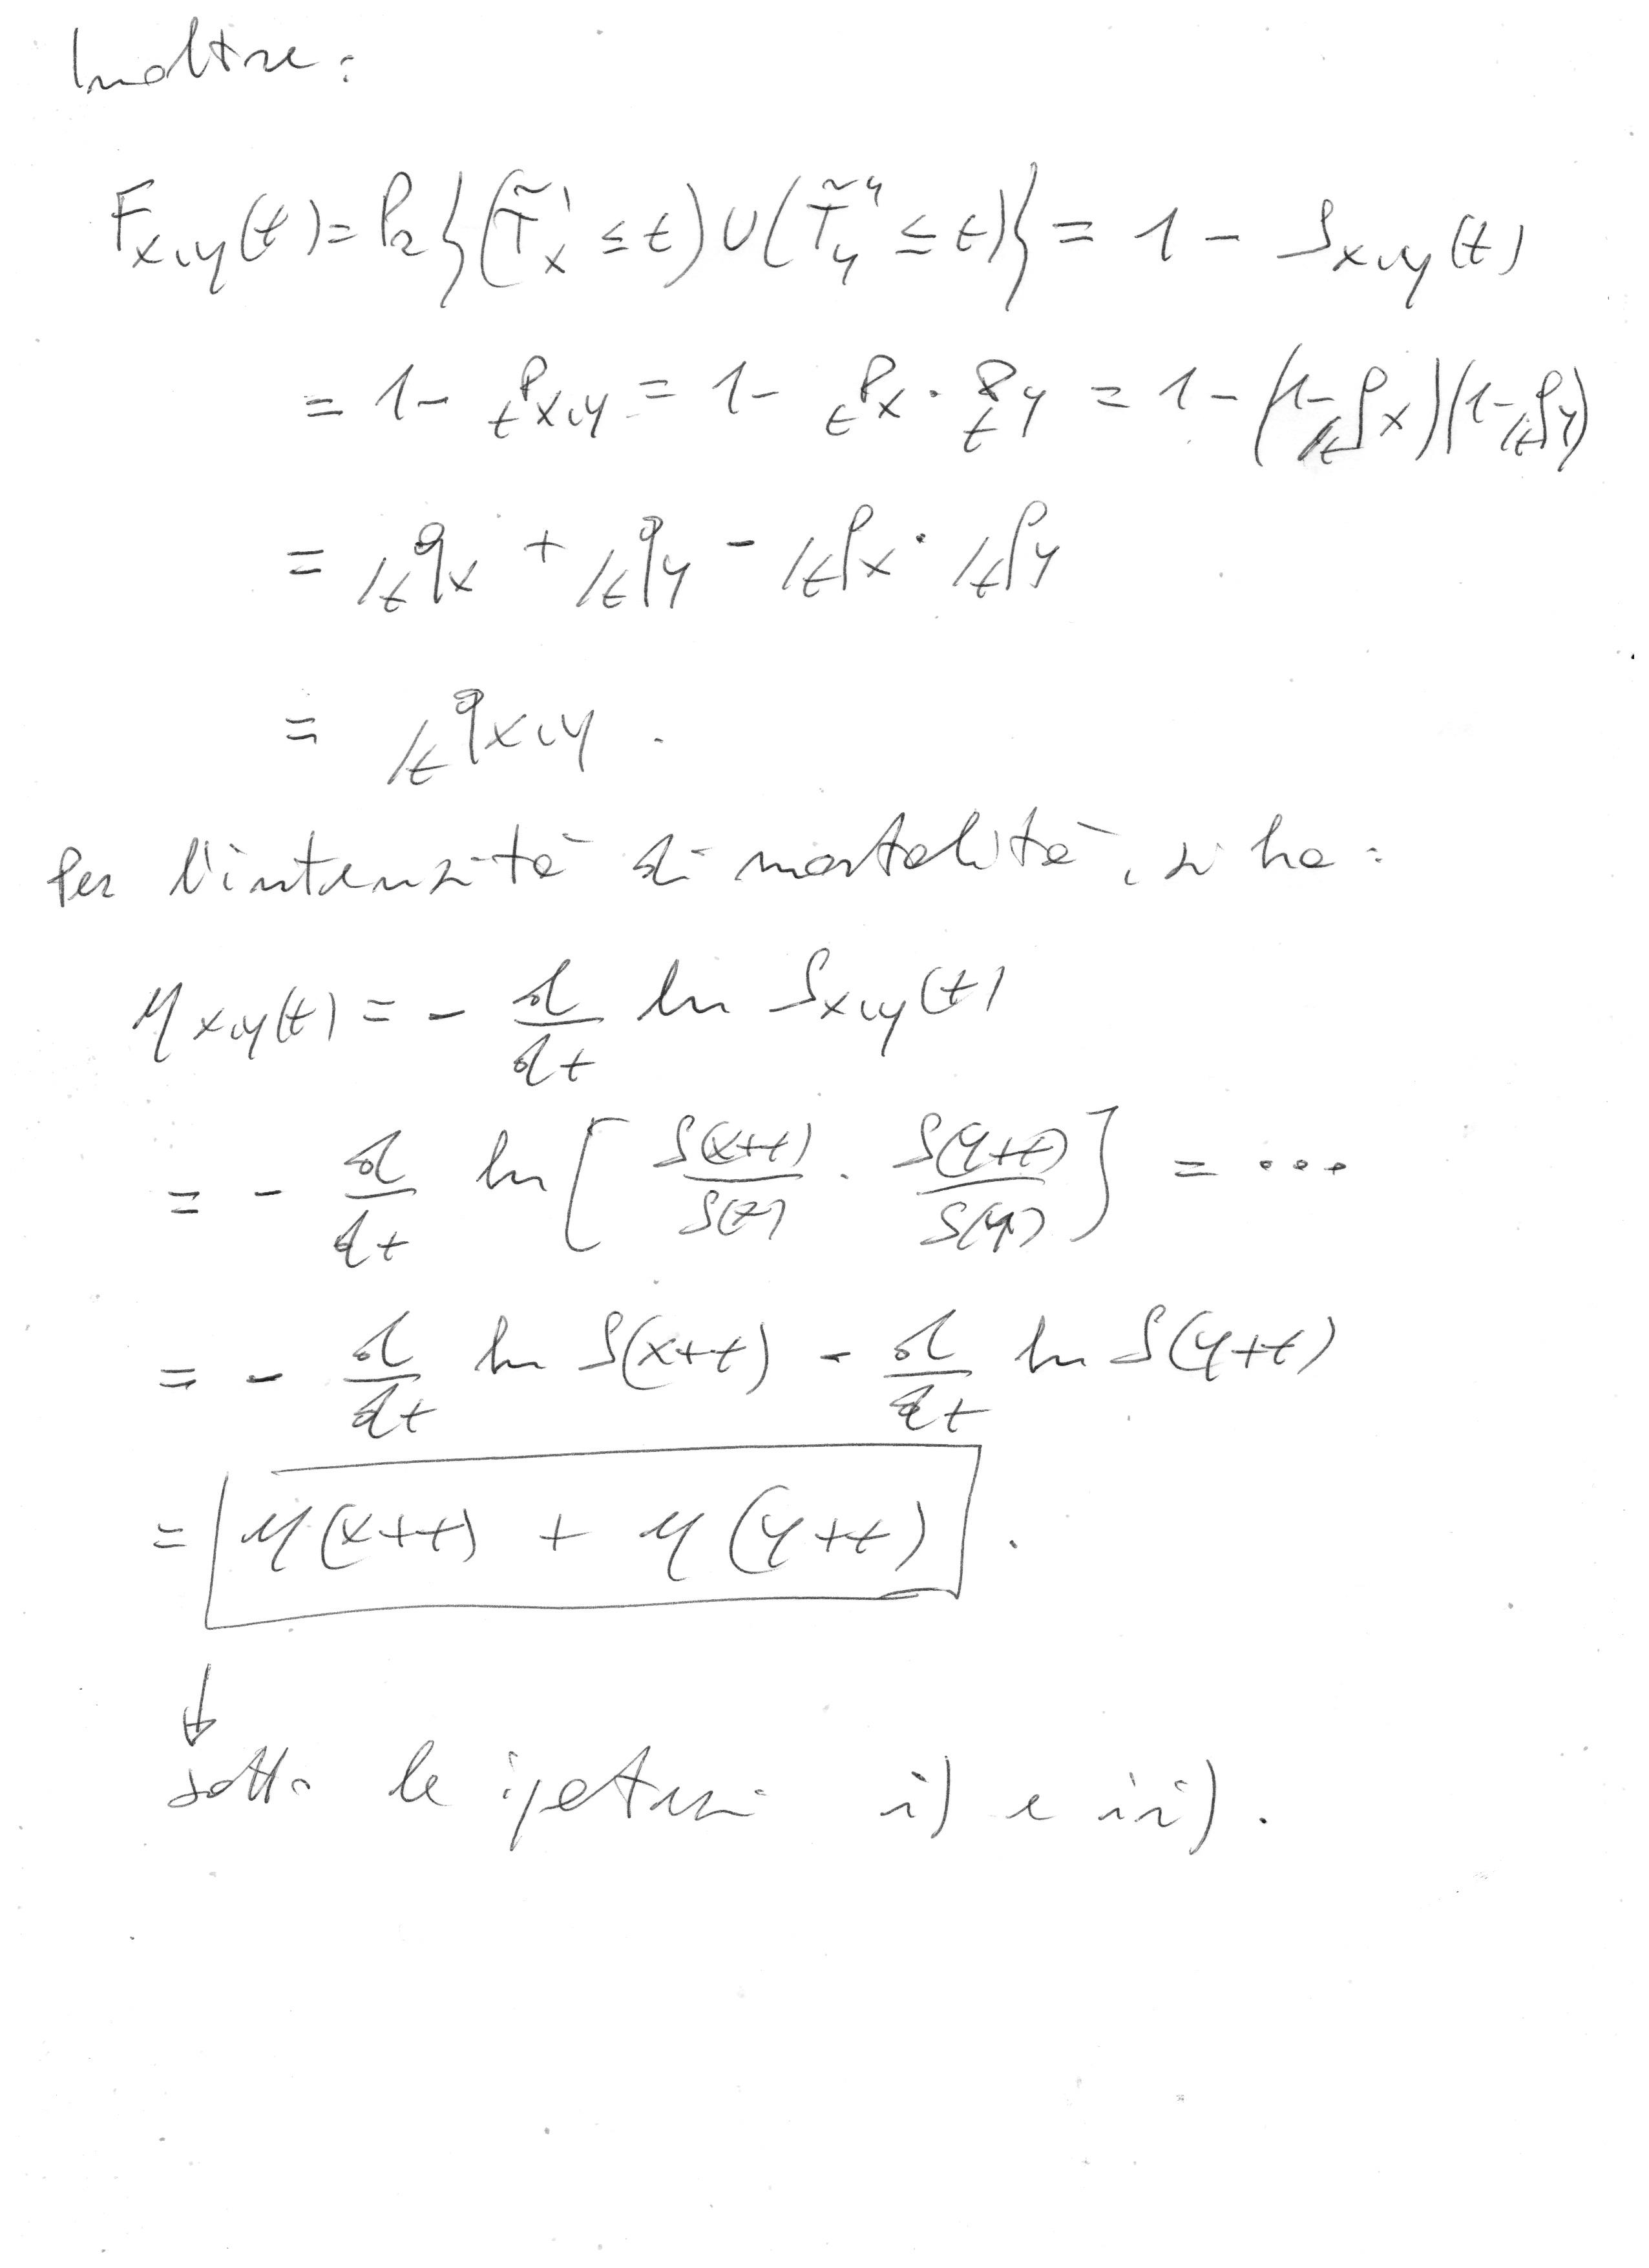 Inoltre:
F_{x,y}(t) = Pr{(T̃'_x ≤ t) ∪ (T̃''_y ≤ t)} = 1 - S_{x,y}(t)
= 1 - _tp_{x,y} = 1 - _tp_x · _tp_y = 1 - (1 - _{/t}q_x)(1 - _{/t}q_y)
= _{/t}q_x + _{/t}q_y - _{/t}q_x · _{/t}q_y
= _{/t}q_{x,y} .
Per l'intensità di mortalità, si ha:
μ_{x,y}(t) = - d/dt ln S_{x,y}(t)
= - d/dt ln [ S(x+t)/S(x) · S(y+t)/S(y) ] = ...
= - d/dt ln S(x+t) - d/dt ln S(y+t)
= μ(x+t) + μ(y+t) .
↓
sotto le ipotesi i) e ii).